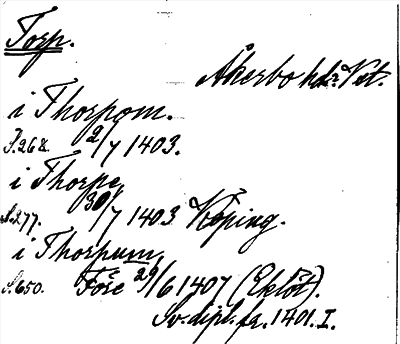 Torp.
Åkerbo hd: Vst.
i Thorpom.
S. 268. 2/7 1403.
i Thorpe
S. 277. 30/7 1403 Köping.
i Thorpum,
S. 650. Före 29/6 1407 (Eklöt).
Sv. dipl. fr. 1401. I.